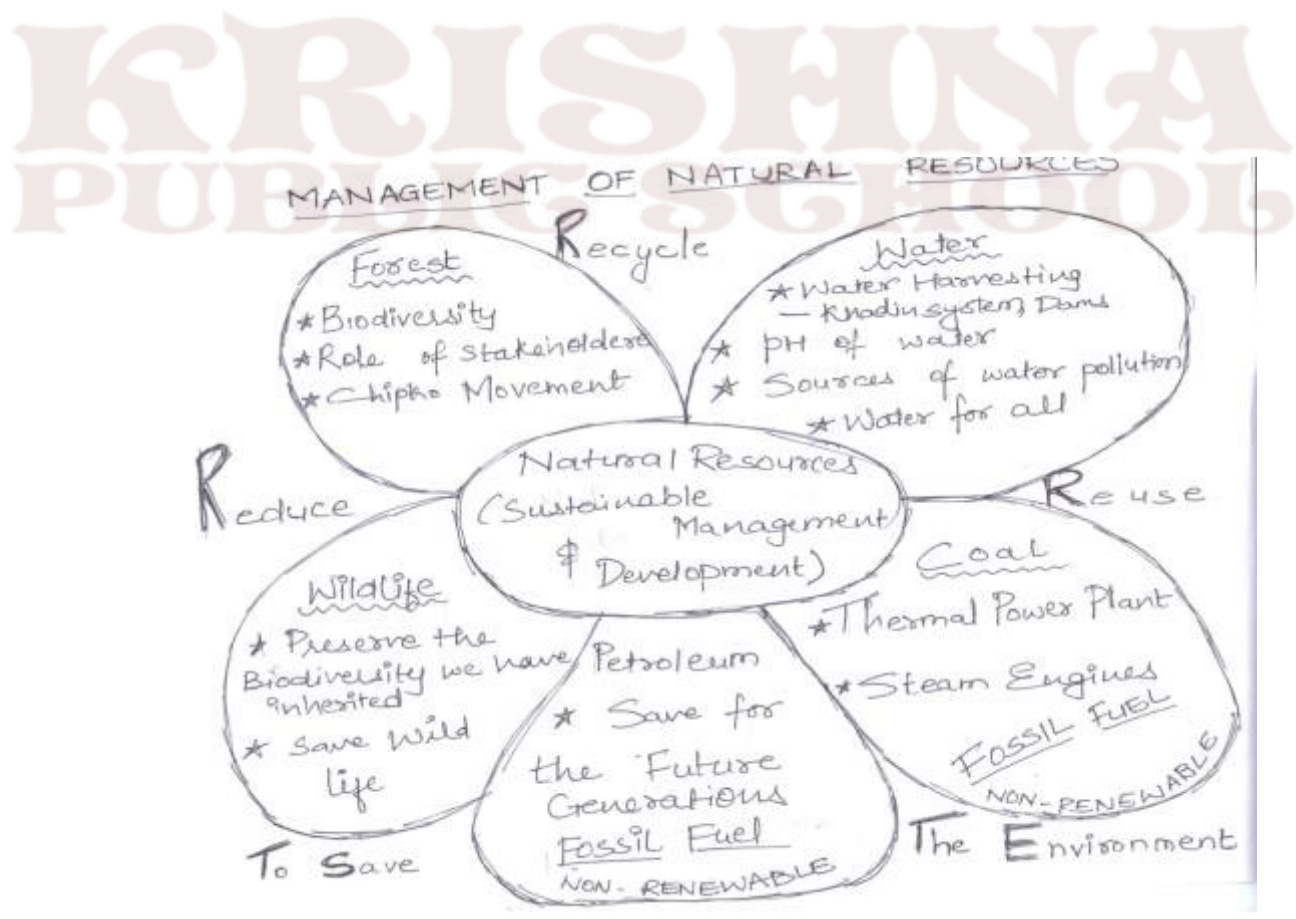 KRISHNA
PUBLIC SCHOOL
MANAGEMENT OF NATURAL RESOURCES
Recycle
Forest
* Biodiversity
* Role of Stakeholders
* Chipko Movement
Water
* Water Harvesting
– Khadin system, Dams
* PH of water
* Sources of water pollution
* Water for all
Reduce
Natural Resources
(Sustainable
Management
& Development)
Reuse
Wildlife
* Preserve the
Biodiversity we have
inherited
* Save Wild
life
Petroleum
* Save for
the Future
Generations
Fossil Fuel
NON-RENEWABLE
Coal
* Thermal Power Plant
* Steam Engines
FOSSIL FUEL
NON-RENEWABLE
To Save
The Environment